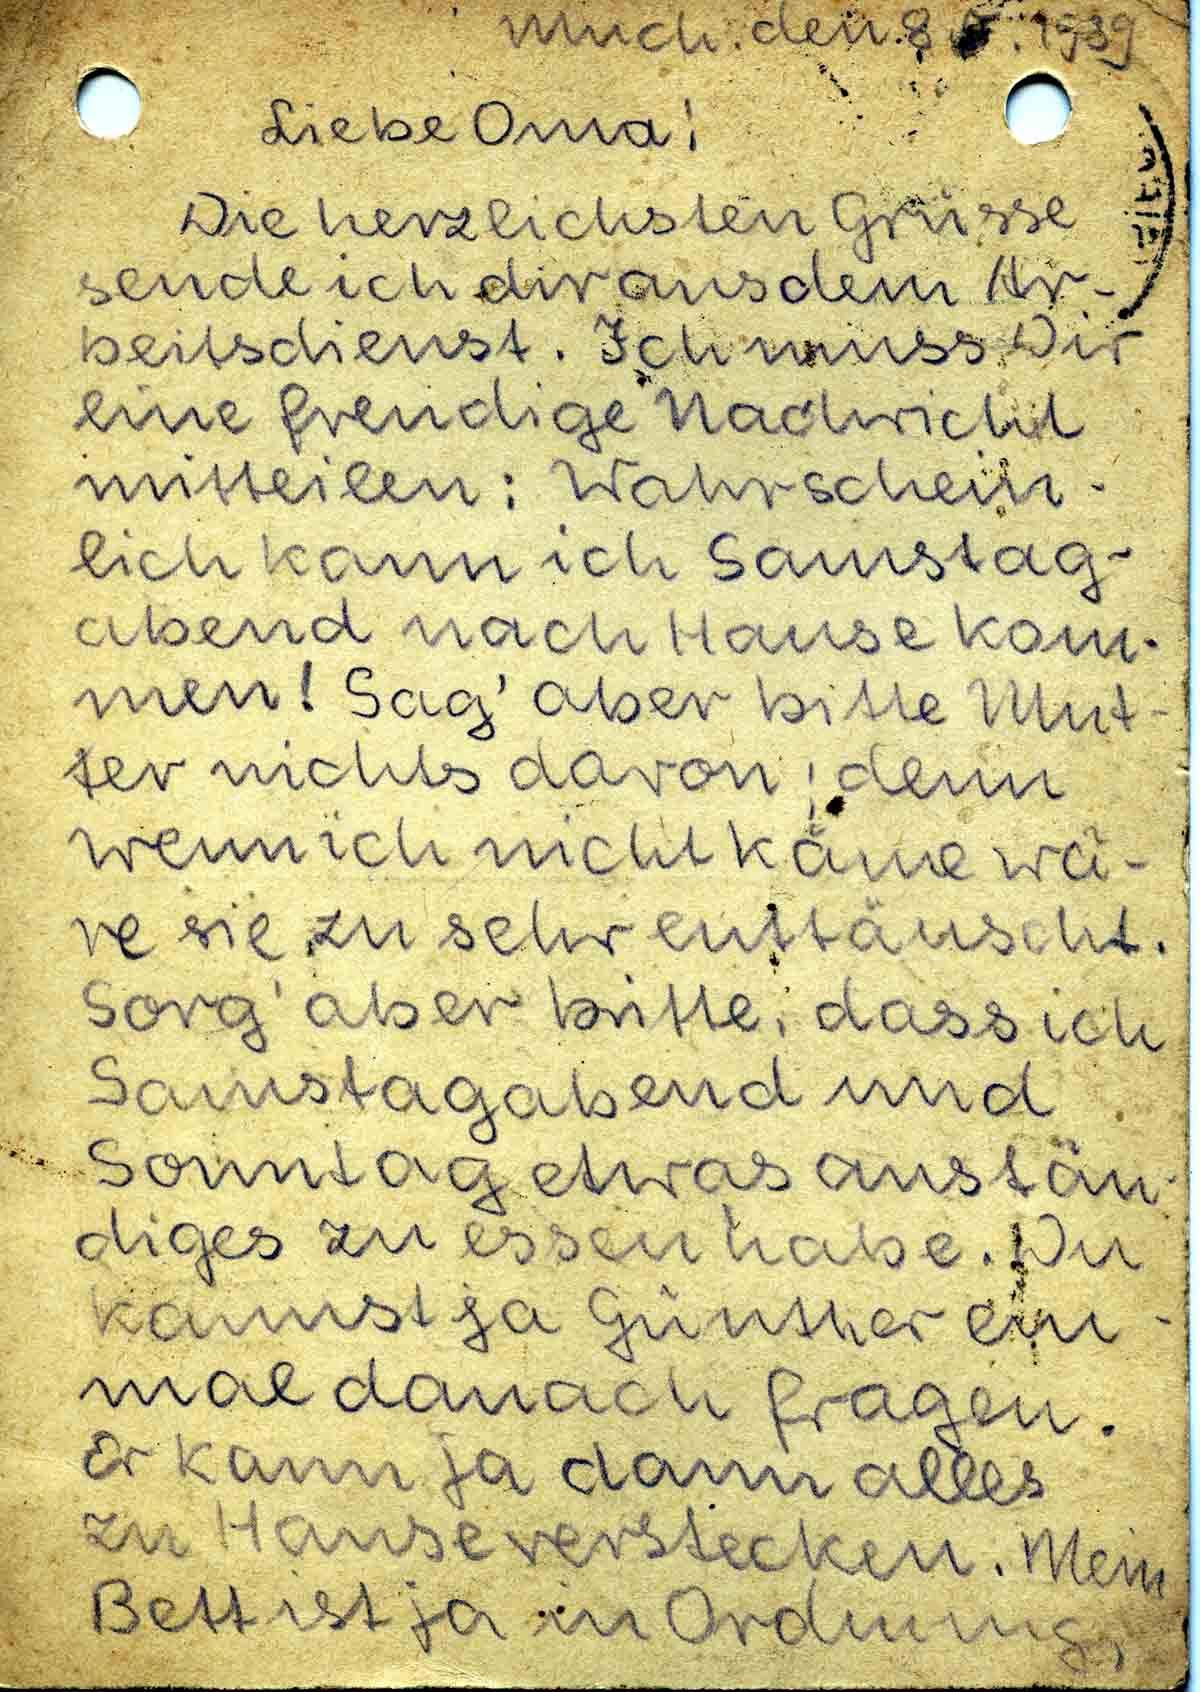 Much. den 8. . 1939
Liebe Oma!
Die herzlichsten Grüsse
sende ich dir aus dem Ar-
beitsdienst. Ich muss Dir
eine freudige Nachricht
mitteilen: Wahrschein-
lich kann ich Samstag-
abend nach Hause kom-
men! Sag' aber bitte Mut-
ter nichts davon; denn
wenn ich nicht käme wä-
re sie zu sehr enttäuscht.
Sorg' aber bitte, dass ich
Samstagabend und
Sonntag etwas anstän-
diges zu essen habe. Du
kannst ja Günther ein-
mal danach fragen.
Er kann ja dann alles
zu Hause verstecken. Mein
Bett ist ja in Ordnung,